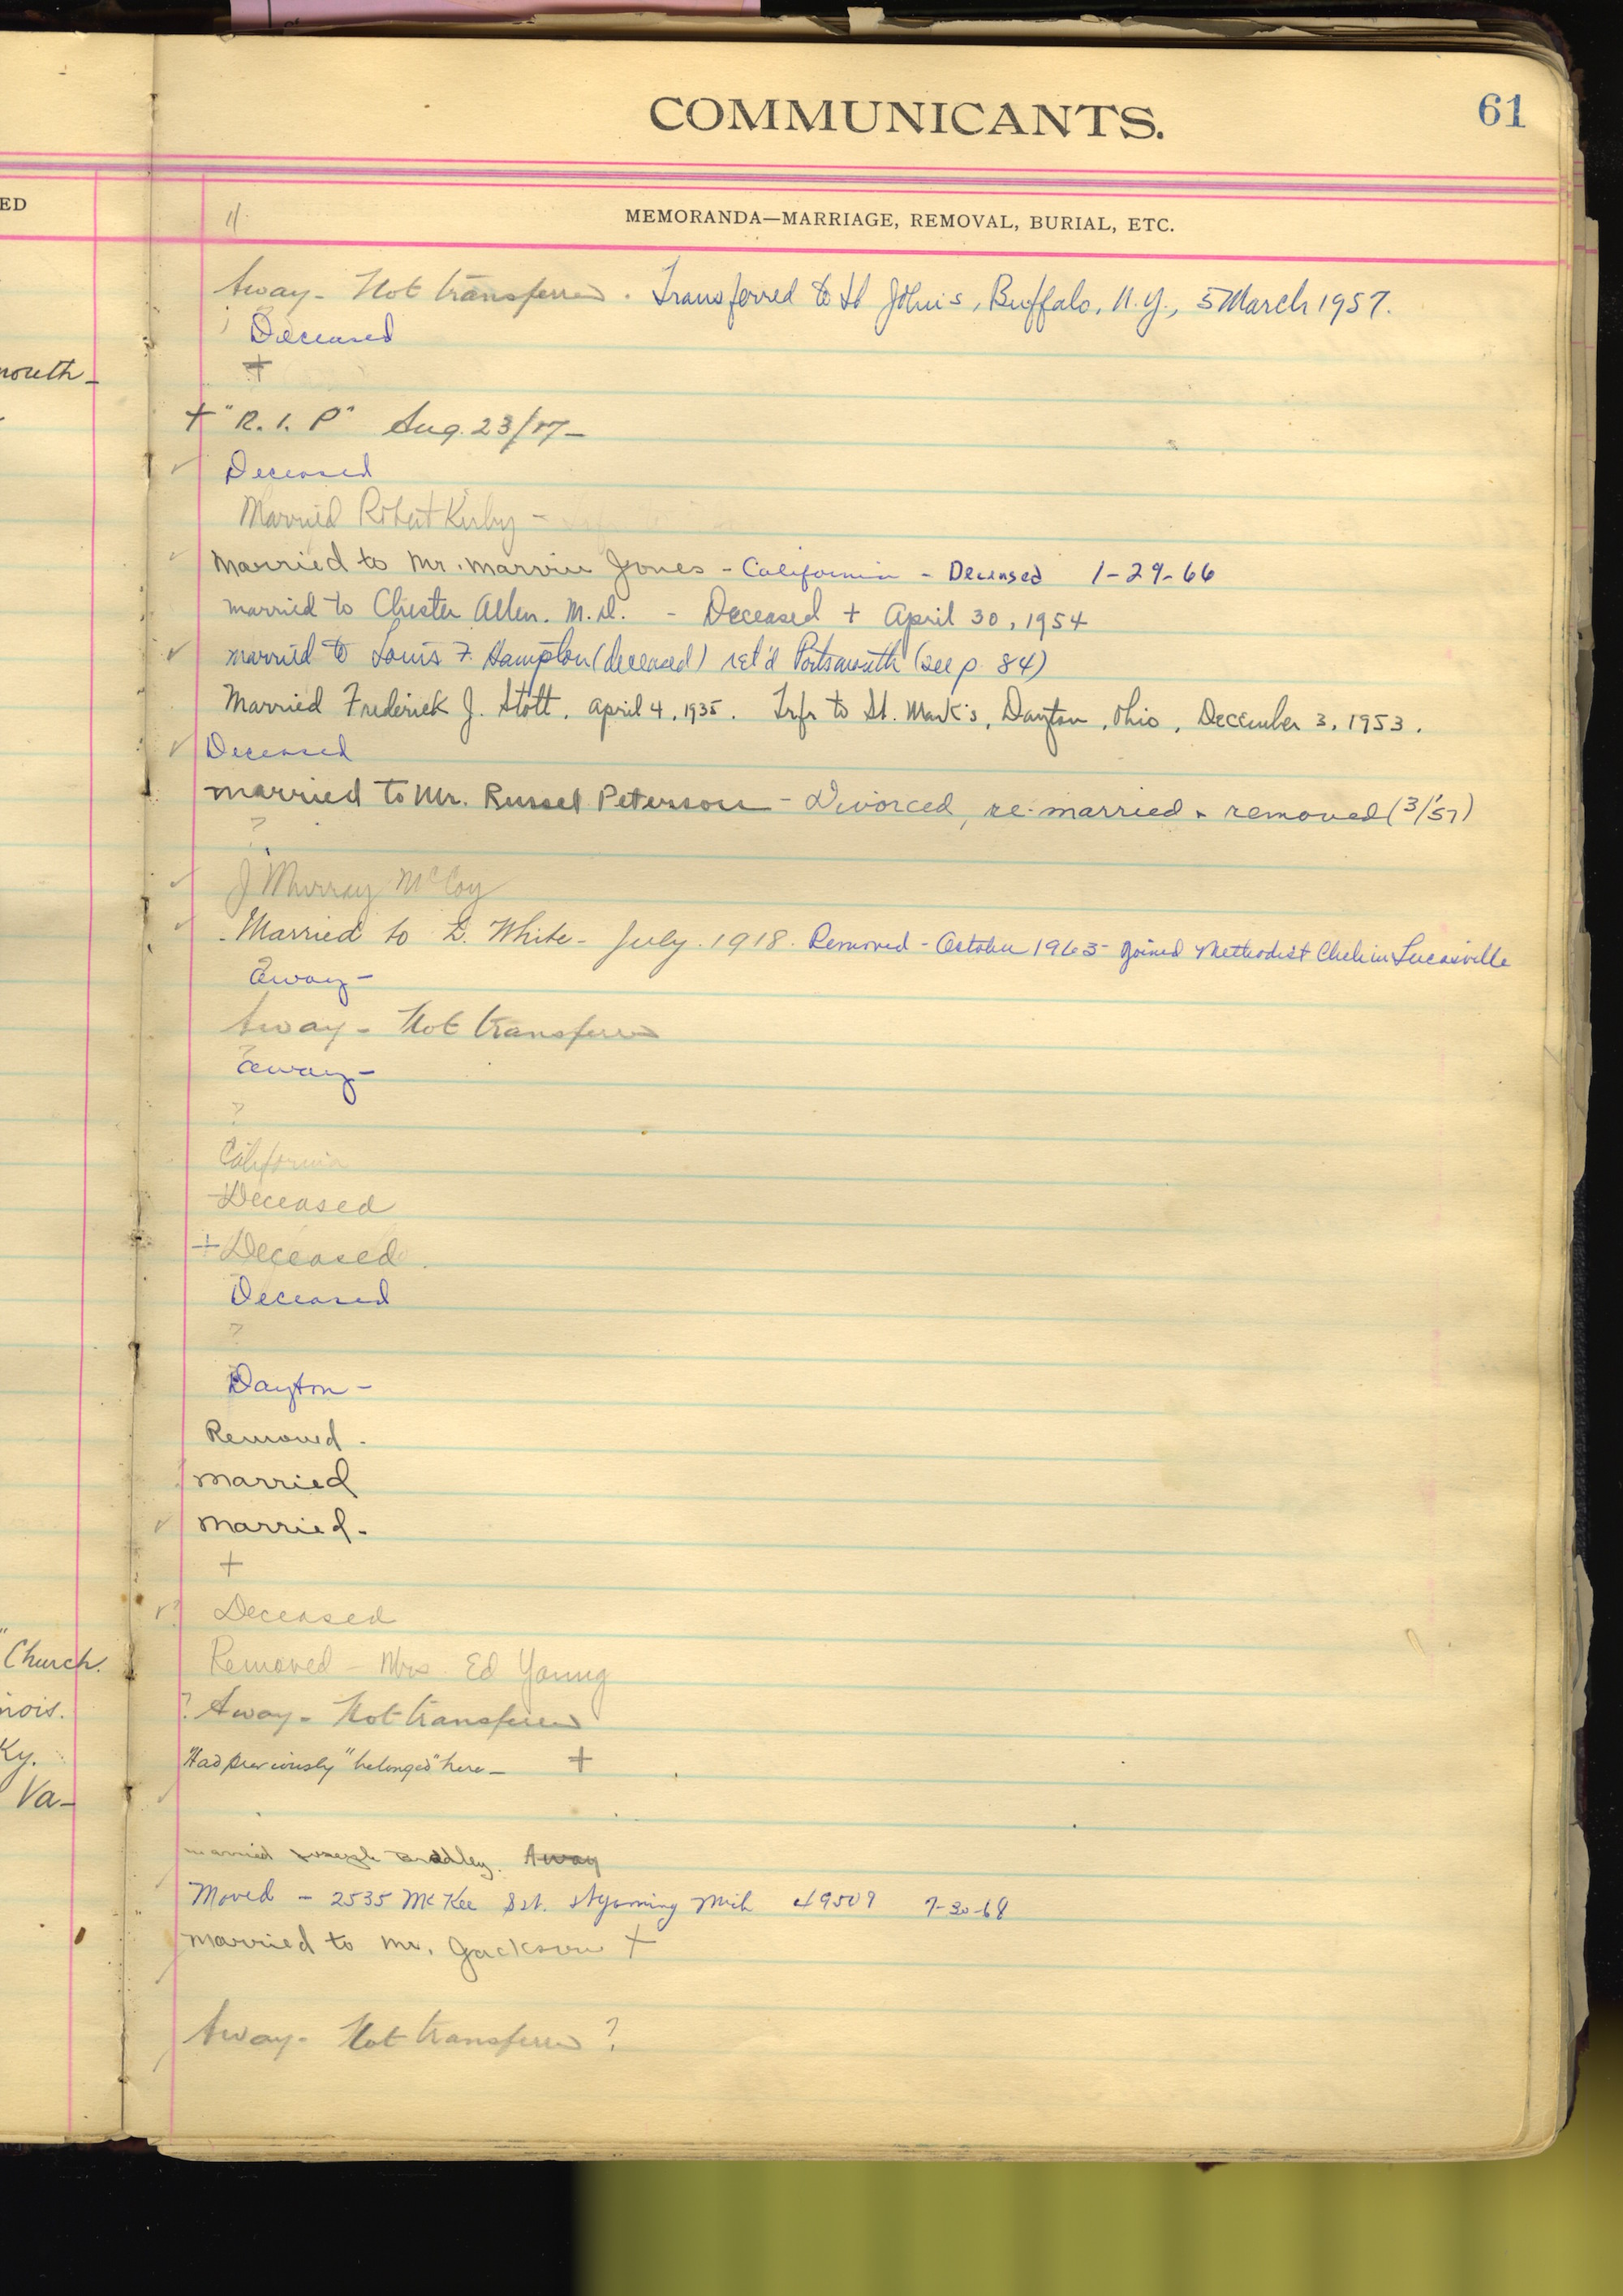 COMMUNICANTS.
61
ED
MEMORANDA—MARRIAGE, REMOVAL, BURIAL, ETC.
Away - Not transferred. Transferred to St John's, Buffalo, N.Y., 5 March 1957.
Deceased
mouth -
+
+ "R. I. P" Aug. 23/17 -
✓ Deceased
Married Robert Kirby -
✓ Married to Mr. Marvin Jones - California - Deceased 1-29-66
married to Chester Allen. M.D. - Deceased + April 30, 1954
✓ married to Louis F. Hampton (deceased) ret'd Portsmouth (see p. 84)
Married Frederick J. Stott. April 4, 1935. Trfr to St. Mark's, Dayton, Ohio, December 3, 1953.
✓ Deceased
married to Mr. Russel Peterson - Divorced, re-married & removed (3/'57)
?
✓ J Murray McCoy
✓ Married to L. White - July. 1918. Removed - October 1963 - joined Methodist Chch in Lucasville
Away -
Away - Not transferred
Away -
?
California
Deceased
+ Deceased.
Deceased
?
Dayton -
Removed.
married
✓ married -
+
✓ Deceased
" Church.
Removed - Mrs. Ed Young
nois.
? Away - Not transferred
Ky.
"Had previously "belonged" here - +
Va -
married Joseph Bradley. Away
Moved - 2535 McKee St. Wyoming Mich 49509 7-30-68
married to Mr. Jackson +
Away - Not transferred ?